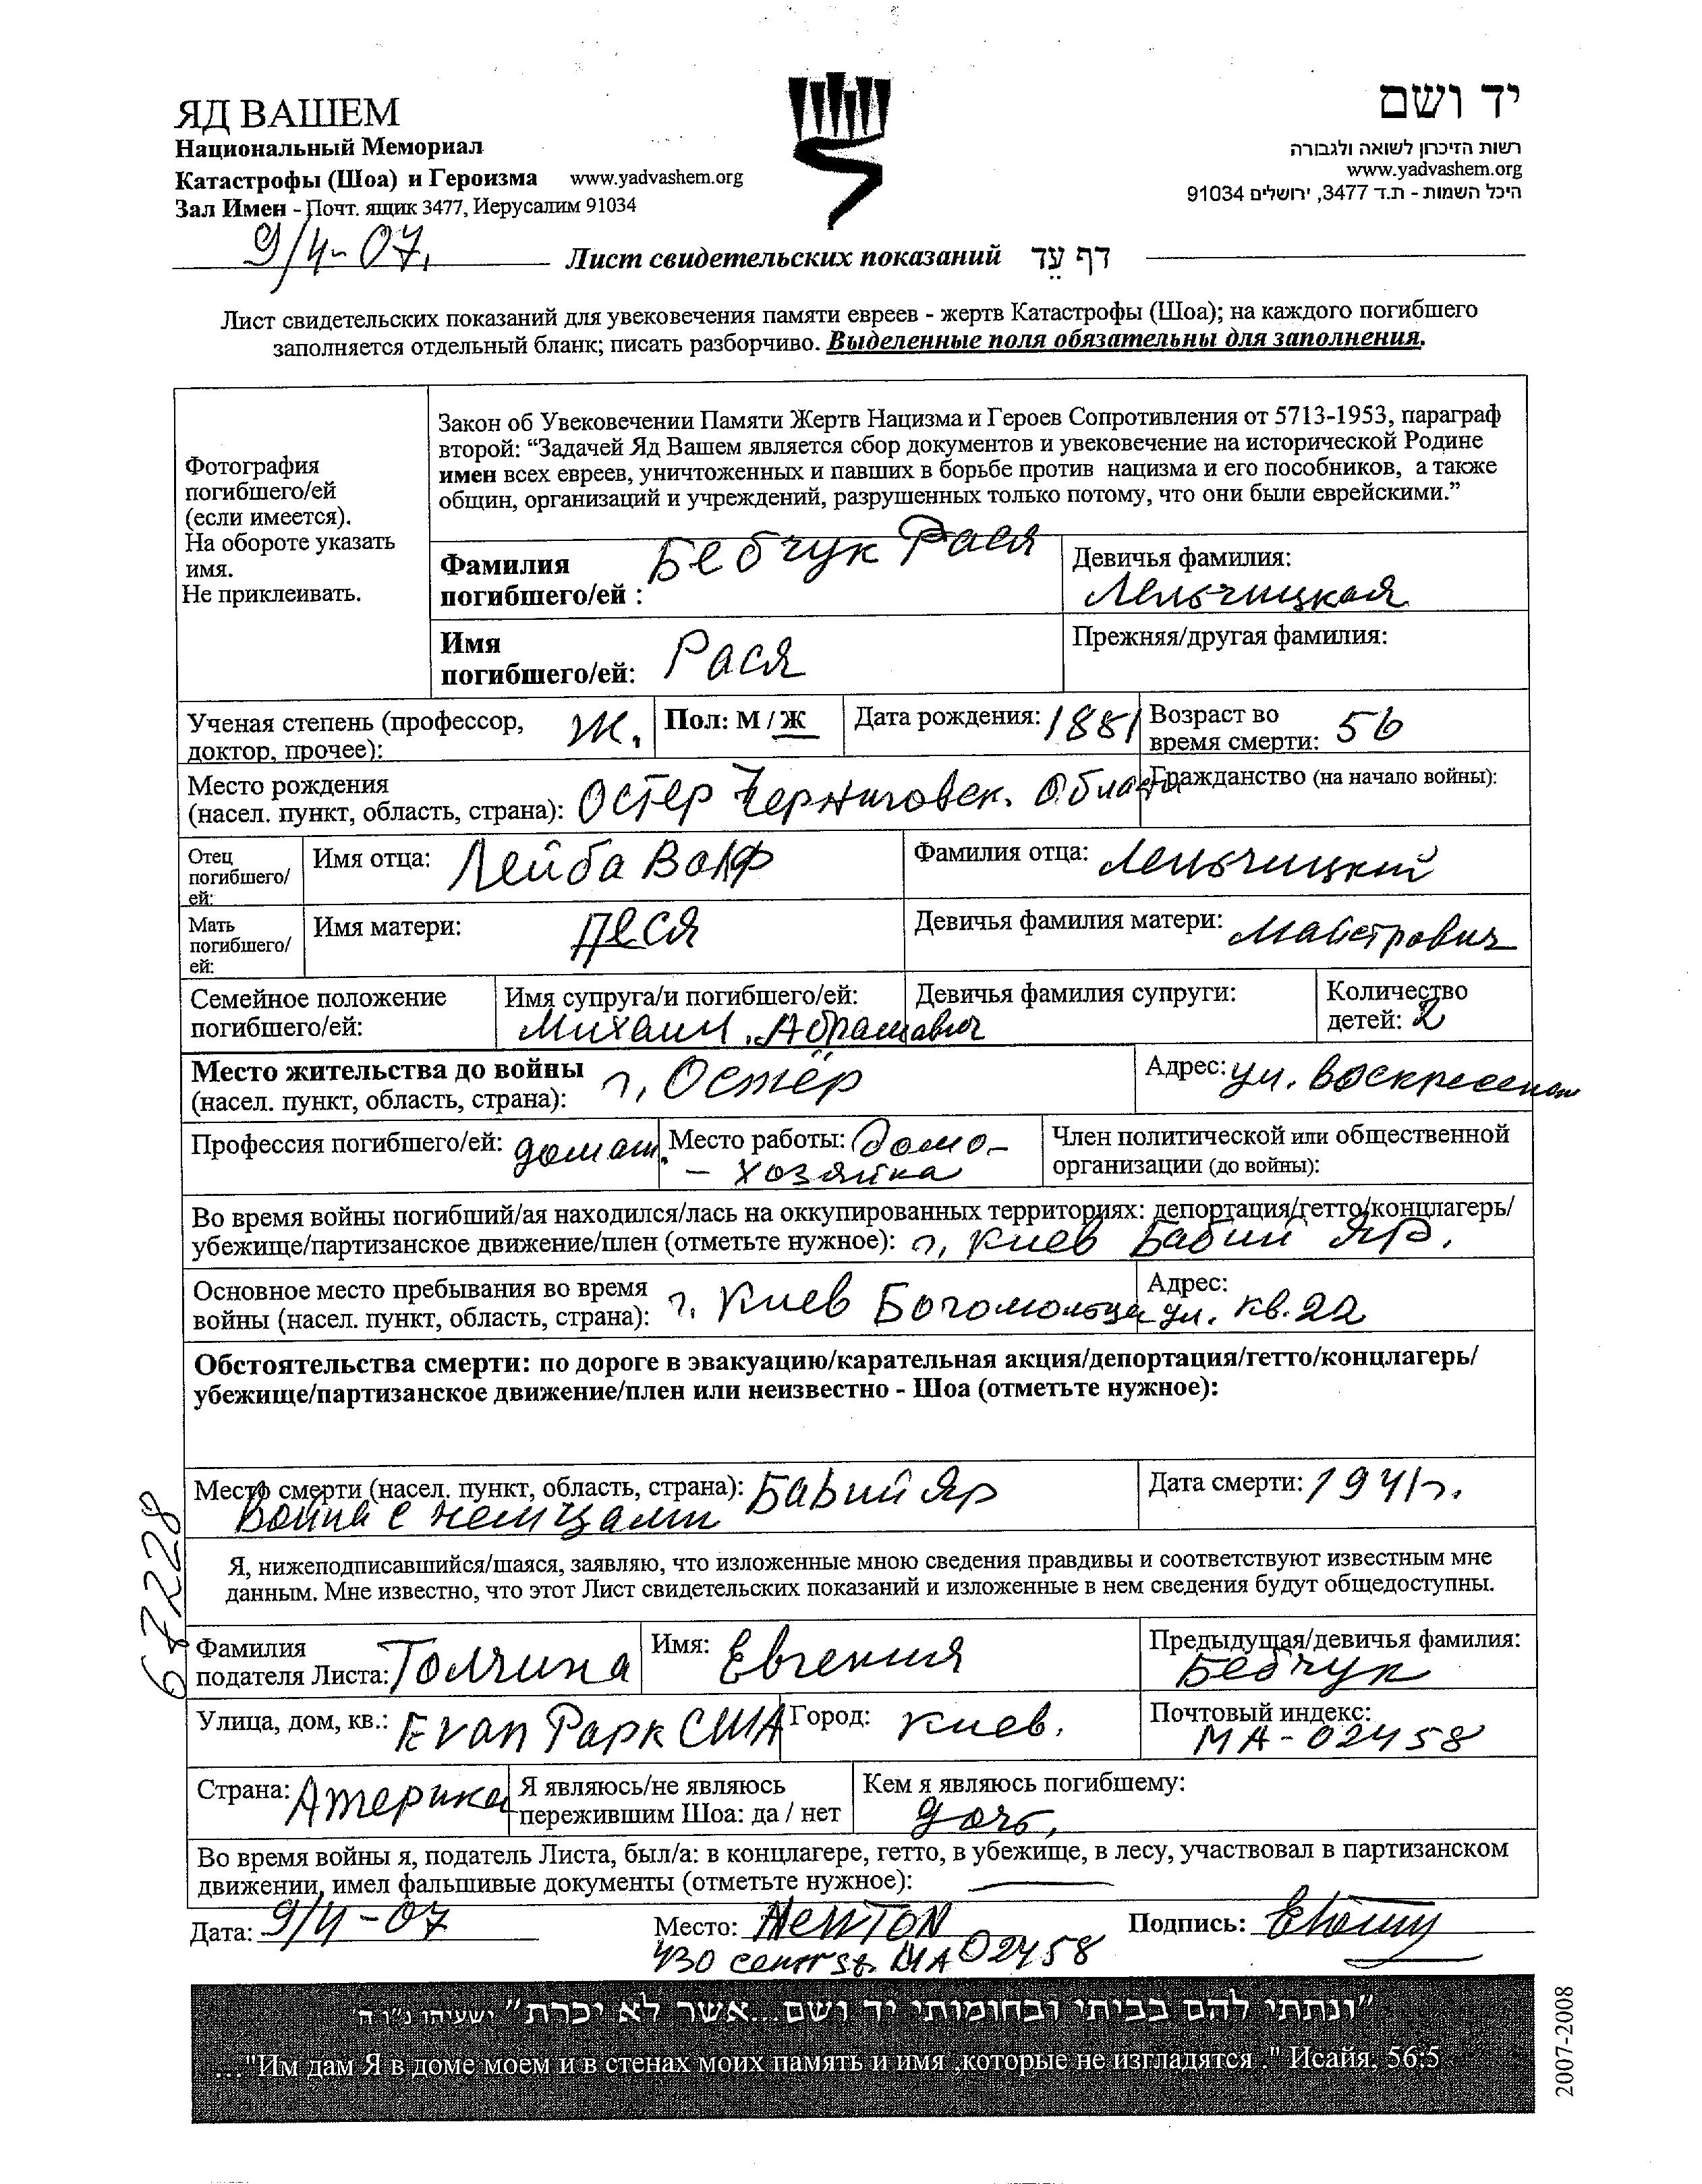 ЯД ВАШЕМ
Национальный Мемориал
Катастрофы (Шоа) и Героизма www.yadvashem.org
Зал Имен - Почт. ящик 3477, Иерусалим 91034
יד ושם
רשות הזיכרון לשואה ולגבורה
www.yadvashem.org
היכל השמות - ת.ד 3477, ירושלים 91034
9/4-07.
Лист свидетельских показаний דף עֵד
Лист свидетельских показаний для увековечения памяти евреев - жертв Катастрофы (Шоа); на каждого погибшего
заполняется отдельный бланк; писать разборчиво. Выделенные поля обязательны для заполнения.
Фотография
погибшего/ей
(если имеется).
На обороте указать
имя.
Не приклеивать.
Закон об Увековечении Памяти Жертв Нацизма и Героев Сопротивления от 5713-1953, параграф
второй: “Задачей Яд Вашем является сбор документов и увековечение на исторической Родине
имен всех евреев, уничтоженных и павших в борьбе против нацизма и его пособников, а также
общин, организаций и учреждений, разрушенных только потому, что они были еврейскими.”
Фамилия
погибшего/ей : Бебчук Рася
Девичья фамилия:
Лельчицкая
Имя
погибшего/ей: Рася
Прежняя/другая фамилия:
Ученая степень (профессор,
доктор, прочее): Ж.
Пол: М / Ж
Дата рождения: 1881
Возраст во
время смерти: 56
Место рождения
(насел. пункт, область, страна): Остер Черниговск. Область
Гражданство (на начало войны):
Отец
погибшего/
ей:
Имя отца: Лейба Волф
Фамилия отца: Лельчицкий
Мать
погибшего/
ей:
Имя матери: Песя
Девичья фамилия матери: Майстрович
Семейное положение
погибшего/ей:
Имя супруга/и погибшего/ей:
Михаил Абрамович
Девичья фамилия супруги:
Количество
детей: 2
Место жительства до войны
(насел. пункт, область, страна): г. Остёр
Адрес: ул.
Профессия погибшего/ей: домаш.
Место работы: Домо-
- хозяйка
Член политической или общественной
организации (до войны):
Во время войны погибший/ая находился/лась на оккупированных территориях: депортация/гетто/концлагерь/
убежище/партизанское движение/плен (отметьте нужное): г. Киев Бабий Яр.
Основное место пребывания во время
войны (насел. пункт, область, страна): г. Киев Богомольца
Адрес:
ул. кв. 22
Обстоятельства смерти: по дороге в эвакуацию/карательная акция/депортация/гетто/концлагерь/
убежище/партизанское движение/плен или неизвестно - Шоа (отметьте нужное):
Место смерти (насел. пункт, область, страна): Бабий Яр
Война с немцами
Дата смерти: 1941г.
67228
Я, нижеподписавшийся/шаяся, заявляю, что изложенные мною сведения правдивы и соответствуют известным мне
данным. Мне известно, что этот Лист свидетельских показаний и изложенные в нем сведения будут общедоступны.
Фамилия
подателя Листа: Толчина
Имя: Евгения
Предыдущая/девичья фамилия:
Бебчук
Улица, дом, кв.: Evan Парк США
Город: Киев.
Почтовый индекс:
MA-02458
Страна: Америка
Я являюсь/не являюсь
пережившим Шоа: да / нет
Кем я являюсь погибшему:
дочь.
Во время войны я, податель Листа, был/а: в концлагере, гетто, в убежище, в лесу, участвовал в партизанском
движении, имел фальшивые документы (отметьте нужное):
Дата: 9/4-07
Место: NEWTON
430 Centr st. MA 02458
Подпись:
"ונתתי להם בביתי ובחומותי יד ושם...אשר לא יכרת" ישעיהו נ"ו ה
..."Им дам Я в доме моем и в стенах моих память и имя ,которые не изгладятся ." Исайя, 56:5
2007-2008